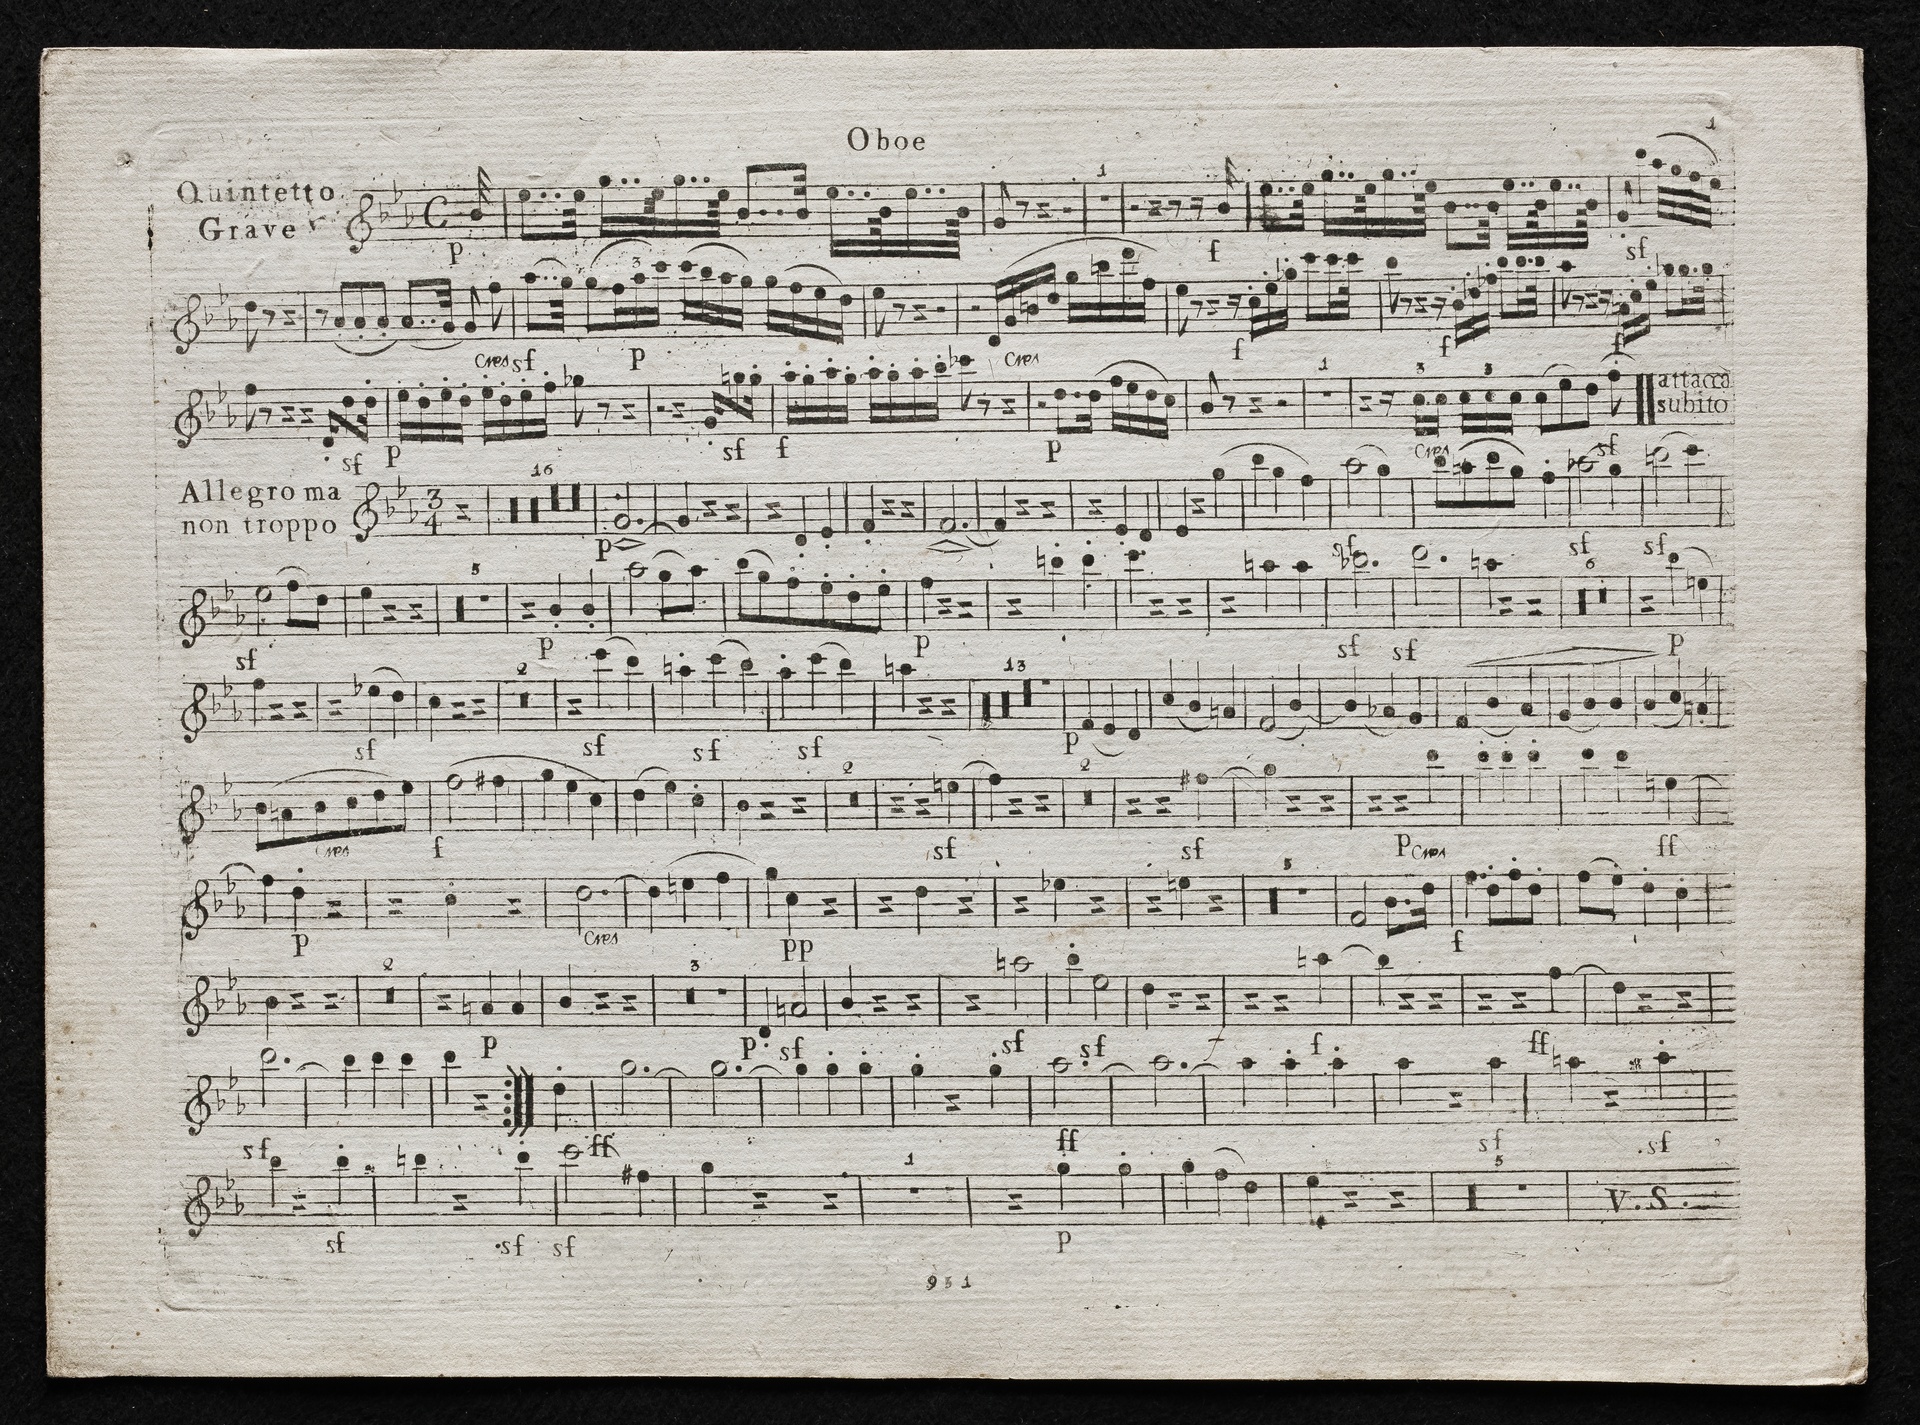 Oboe
1
Quintetto
Grave
1
p
f
sf
3
Cres sf p Cres f f f
1 3 3
attacca
subito
sf p sf f p Cres sf
Allegro ma
non troppo
3
4
16
p sf sf sf
5 6
sf p p sf sf p
2 13
sf sf sf sf p
2 2
Cres f sf sf p Cres ff
5
p Cres pp f
2 3
p p sf sf sf f f ff
sf ff ff sf sf
1 5
V. S.
sf sf sf p
931